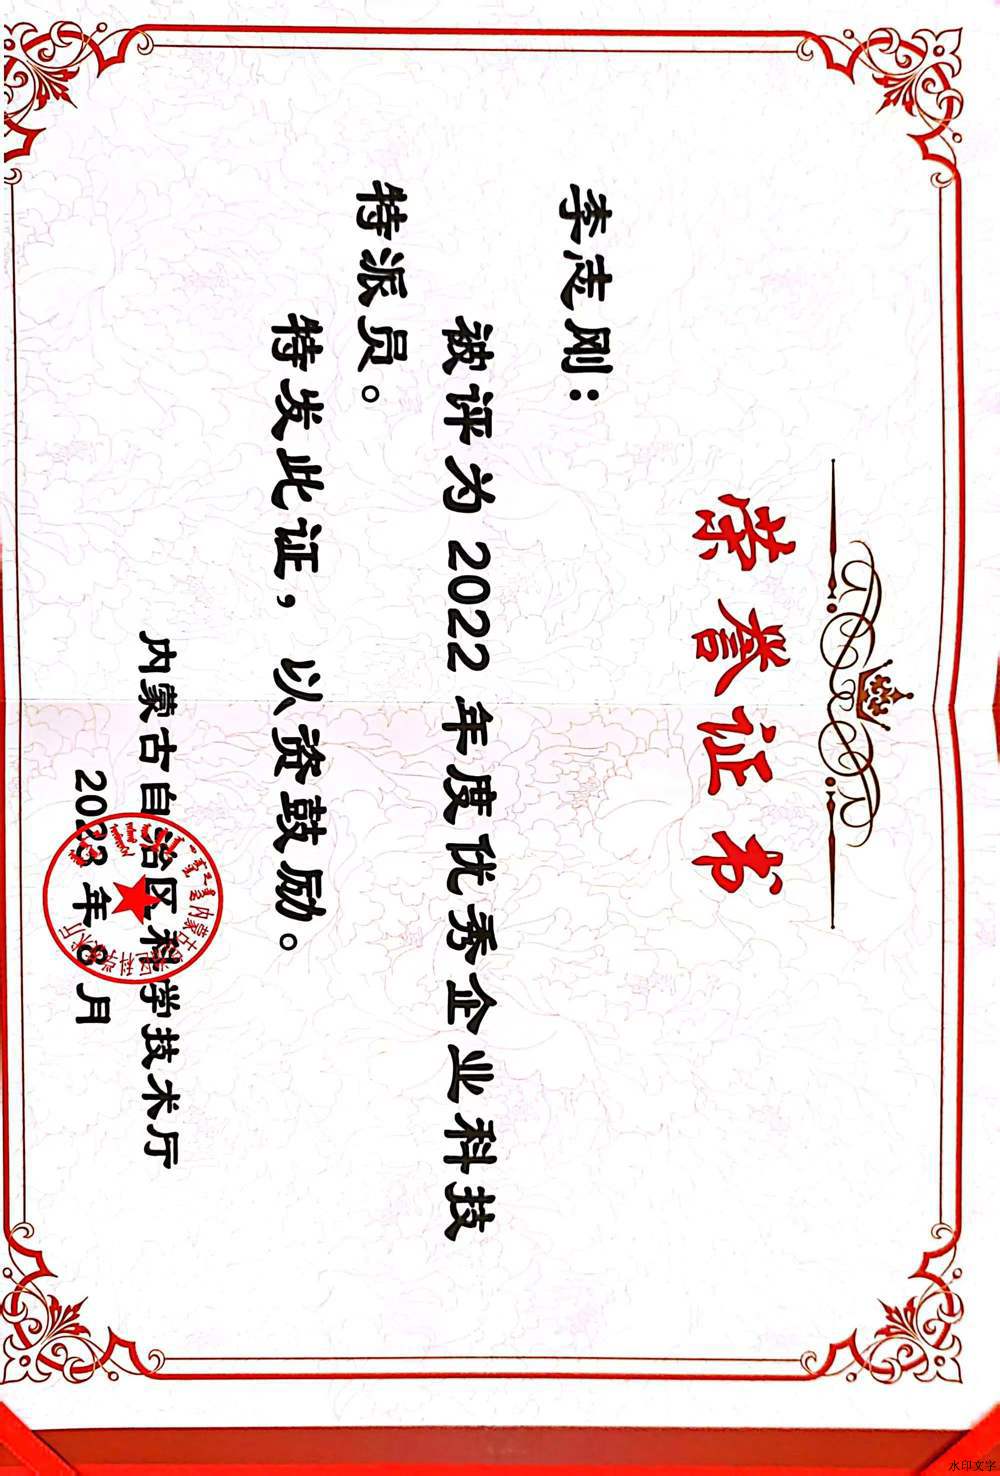 荣誉证书
李志刚：
被评为2022年度优秀企业科技
特派员。
特发此证，以资鼓励。
内蒙古自治区科学技术厅
2023年8月
内蒙古自治区科学技术厅
水印文字